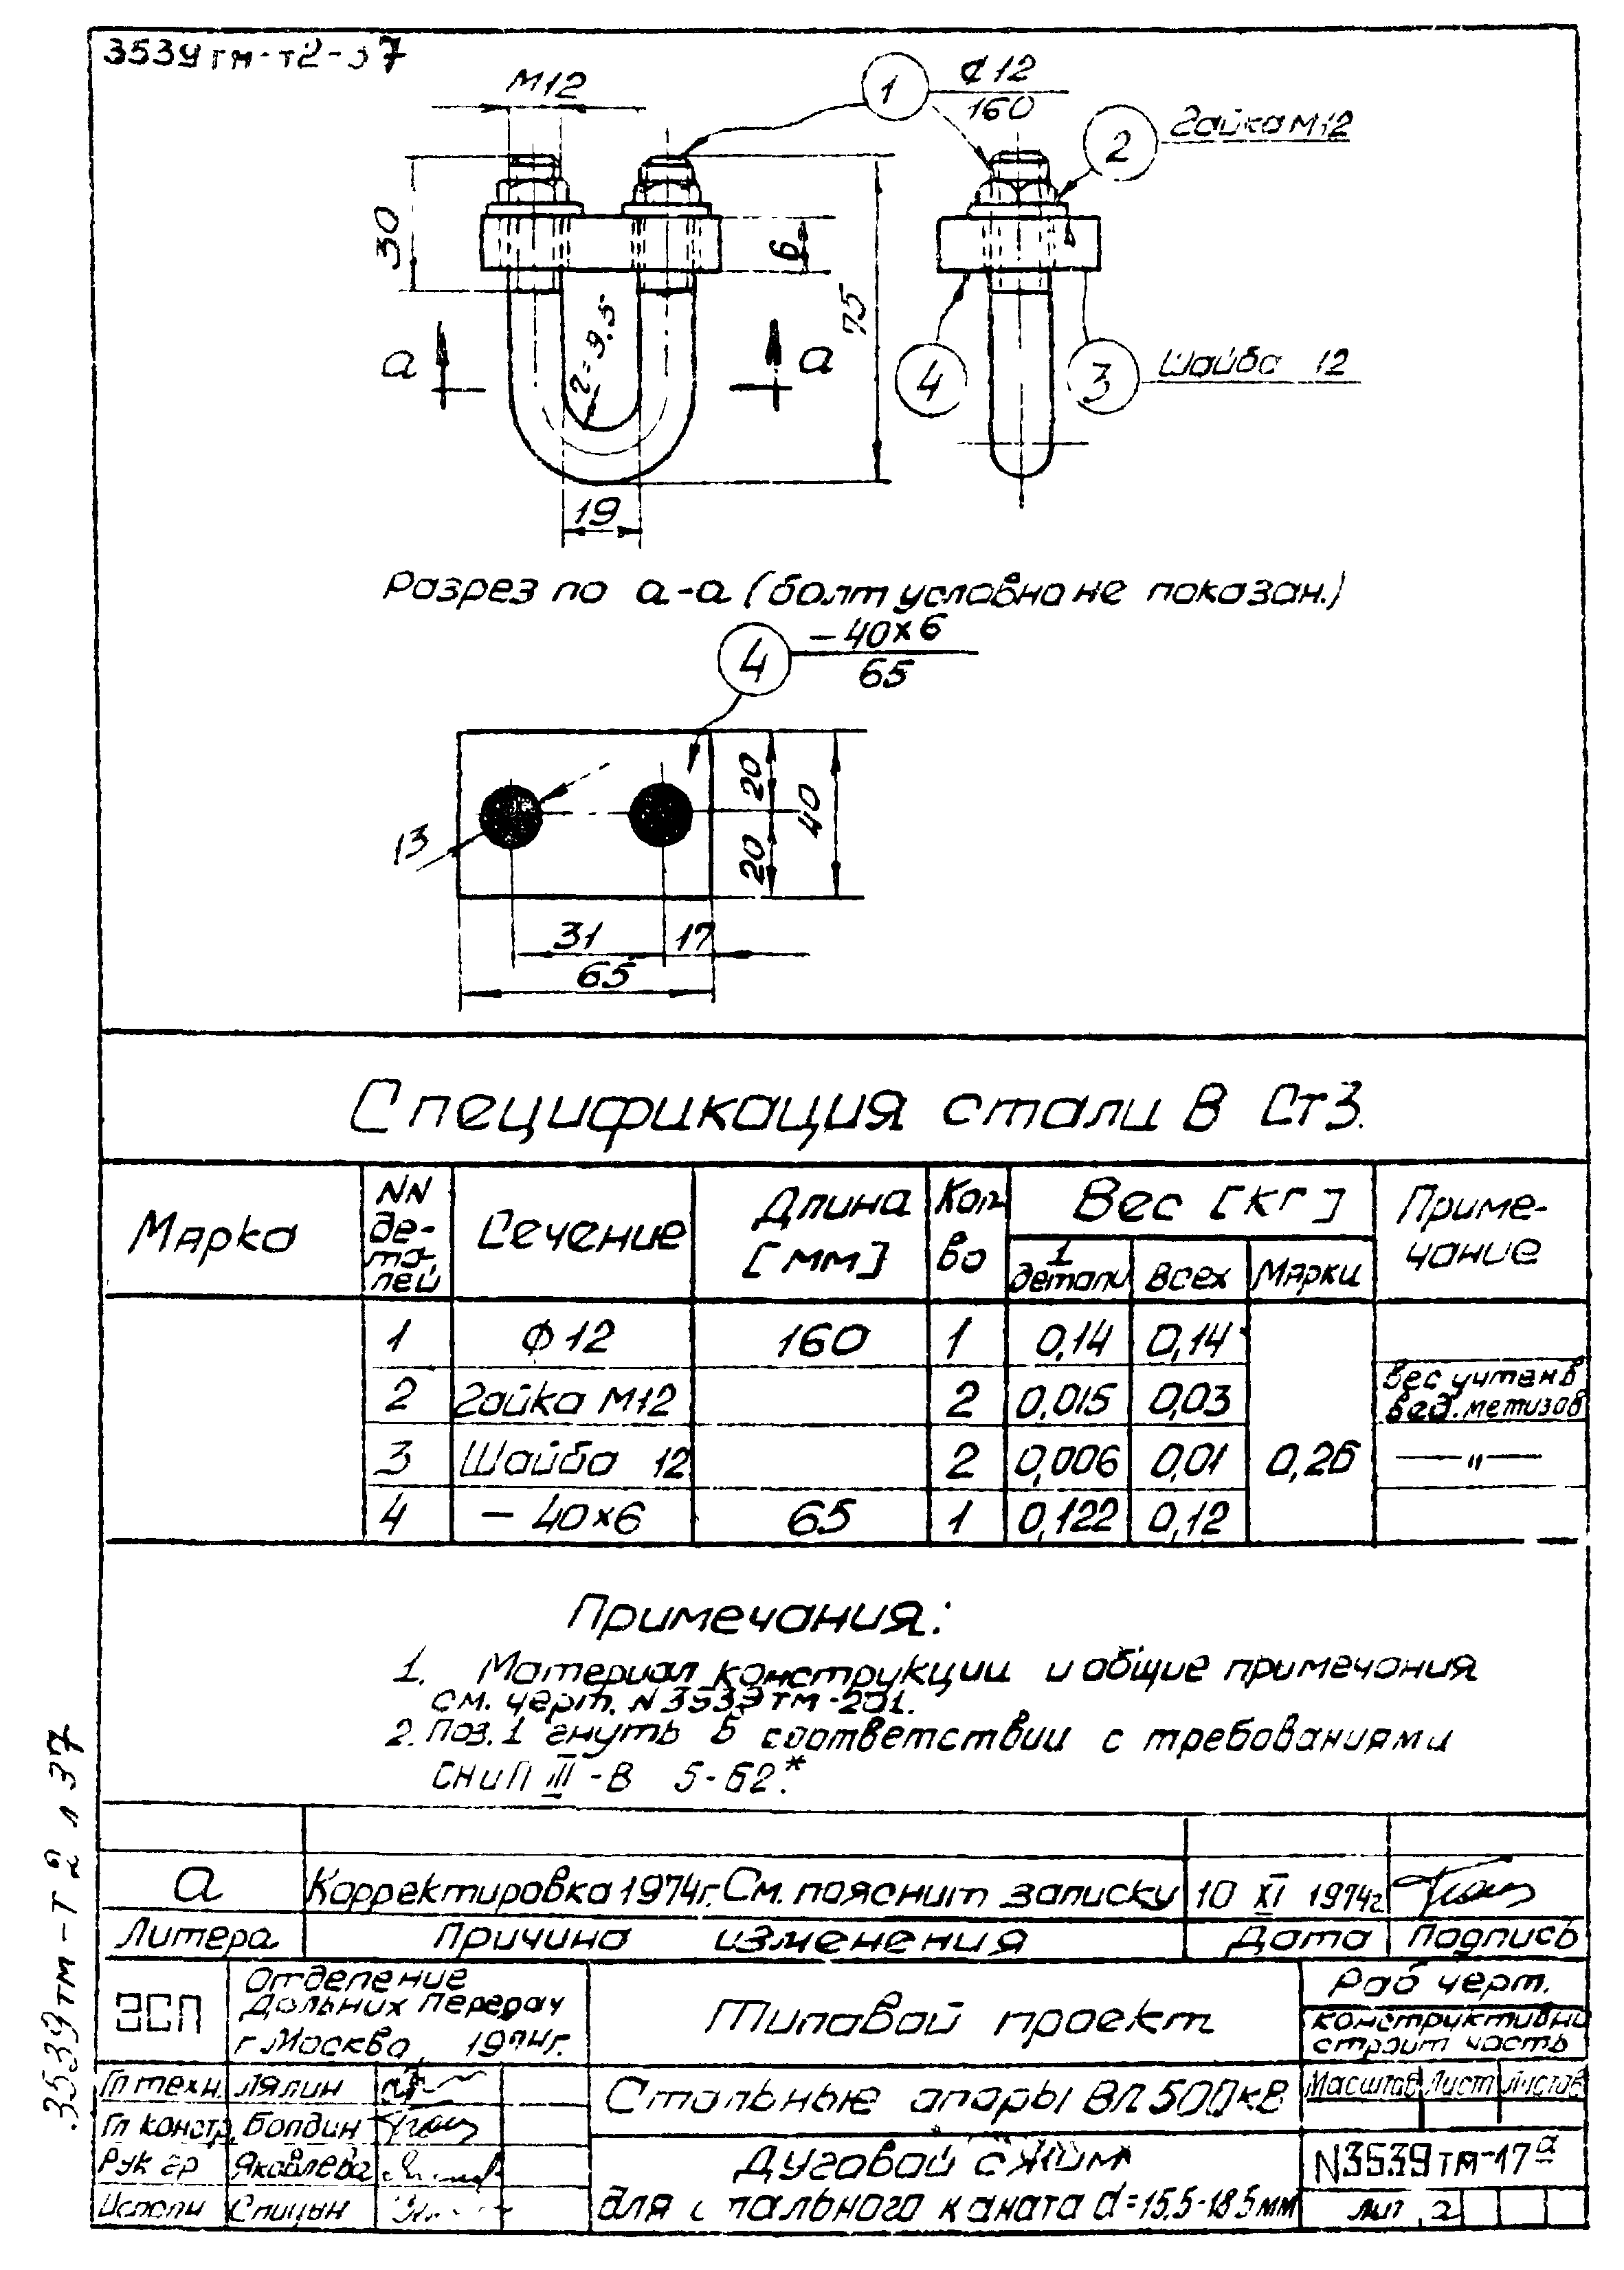 3539тм-т2-37
М12
1
⌀12
160
2
Гайка М12
30
6
75
а
а
r=9.5
4
3
Шайба 12
19
Разрез по а-а (болт условно не показан.)
4
-40×6
65
13
20
20
40
31
17
65
Спецификация стали В Ст3.
Марка
NN де-та-лей
Сечение
Длина [мм]
Кол. во
Вес [кг]
1 детали
Всех
Марки
Приме-чание
1 ⌀12 160 1 0,14 0,14
2 Гайка М12 2 0,015 0,03 вес учтен в вед. метизов
3 Шайба 12 2 0,006 0,01 0,26 —"—
4 -40×6 65 1 0,122 0,12
Примечания:
1. Материал конструкции и общие примечания
см. черт. N 3539тм-201.
2. Поз. 1 гнуть в соответствии с требованиями
СНиП III-В 5-62.*
3539тм-Т2 л 37
а Корректировка 1974г. См. пояснит записку 10 XI 1974г.
Литера Причина изменения Дата Подпись
ЭСП
Отделение
Дальних передач
г. Москва 1974г.
Типовой проект
Раб черт.
конструктивно
строит часть
Гл техн. Лялин
Гл констр. Болдин
Рук гр Яковлева
Исполн Спицын
Стальные опоры ВЛ 500кВ
Масштаб Лист Листов
Дуговой сжим
для стального каната d=15,5-18,5мм
N3539тм-17а
лит а